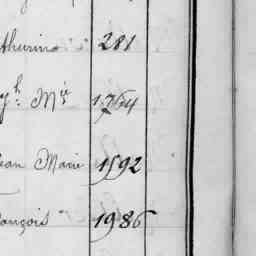 thurin 281
ph. Mie 1764
Jean Marie 1592
ançois 1986